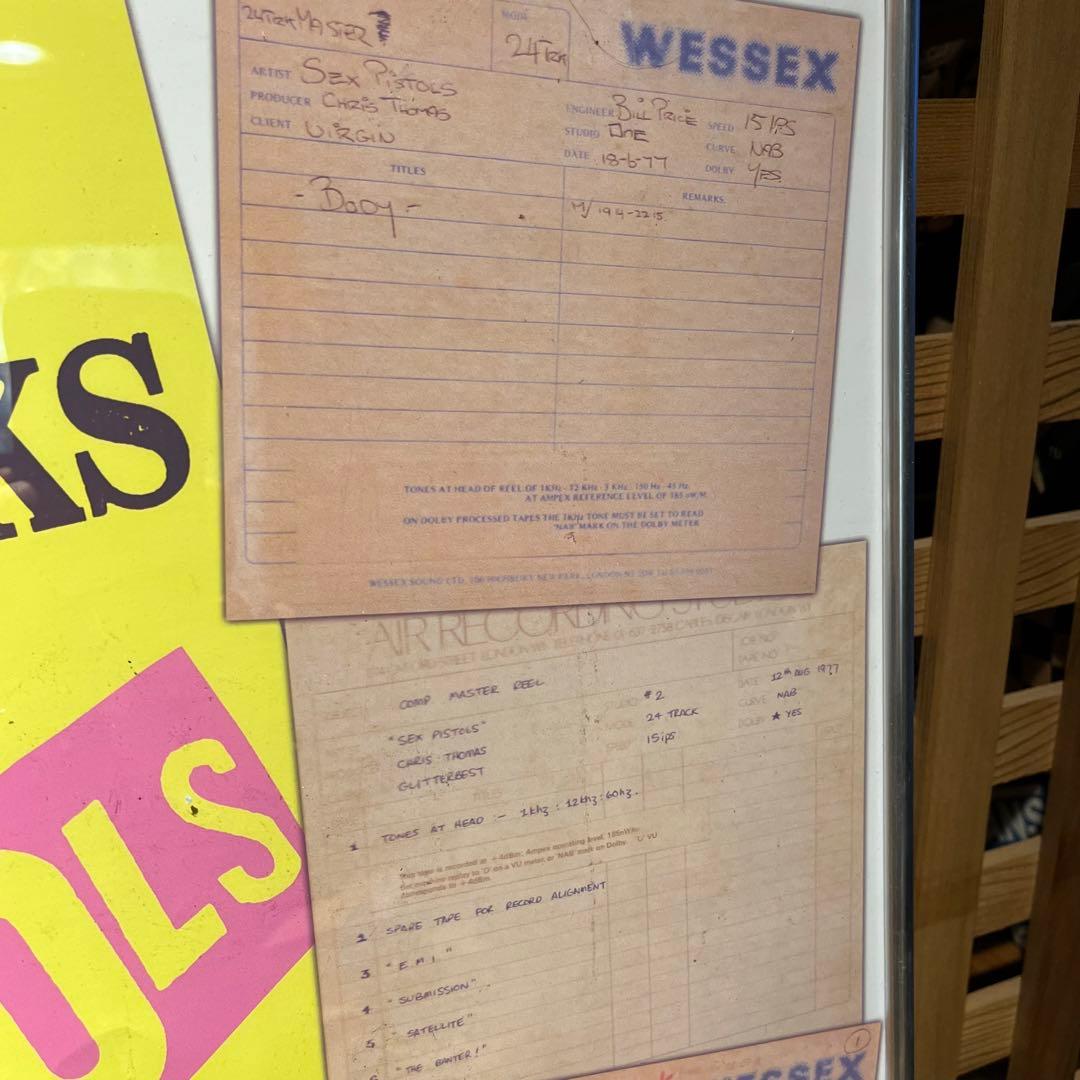 24TRK MASTER
MODE
24TRK
WESSEX
ARTIST SEX PISTOLS
PRODUCER CHRIS THOMAS
CLIENT VIRGIN
ENGINEER BILL PRICE
STUDIO ONE
DATE 18-6-77
SPEED 15 IPS
CURVE NAB
DOLBY YES.
TITLES
REMARKS.
- BODY -
M/ 194-2215
TONES AT HEAD OF REEL OF 1KHz - 12 KHz - 3 KHz - 150 Hz - 45 Hz
AT AMPEX REFERENCE LEVEL OF 185 nW/M
ON DOLBY PROCESSED TAPES THE 1KHz TONE MUST BE SET TO READ
'NAB' MARK ON THE DOLBY METER
WESSEX SOUND LTD. 106 HIGHBURY NEW PARK, LONDON N5
KS
OLS
AIR RECORDING
STREET LONDON W1 TELEPHONE 01-637 2758 CABLES LONDON W1
JOB NO
TAPE NO
COMP MASTER REEL
"SEX PISTOLS"
CHRIS THOMAS
GLITTERBEST
#2
24 TRACK
SPEED 15ips
DATE 12th AUG 1977
CURVE NAB
DOLBY ★ YES
TITLES
1 TONES AT HEAD :- 1khz : 12khz : 60hz.
This tape is recorded at +4dBm: Ampex operating level, 185nW/m
Set machine replay to 'O' on a VU meter, or 'NAB' mark on Dolby. 'U' VU
corresponds to +4dBm
2 SPARE TAPE FOR RECORD ALIGNMENT
3 "E.M.I"
4 "SUBMISSION"
5 SATELLITE"
6 "THE BANTER!"
1
WESSEX